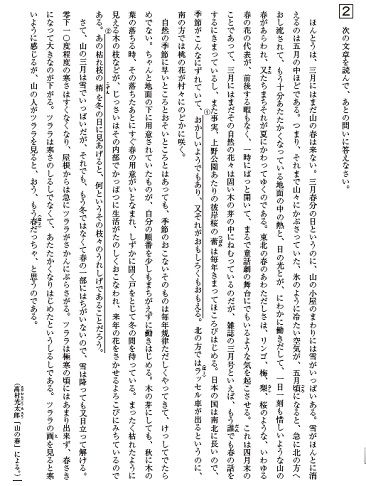 2 次の文章を読んで、あとの問いに答えなさい。
ほんとうは、三月にはまだ山の春は来ない。三月春分の日というのに、山の小屋のまわりには雪がいっぱいある。雪がほんとに消
えるのは五月の中ほどである。つまり、それまで山々にかぶさっていた、氷のように冷たい空気が、五月頃になると、急に北の方へ
おし流されて、もう十分あたたかくなっている地面の中の熱と、日の光とが、にわかに働きだして、一日一刻も惜しいような山の
春があらわれ、又たちまちそれが夏にかわってゆくのである。東北の春のあわただしさは、リンゴ、梅、梨、桜のような、いわゆる
春の花の代表が、前後する暇もなく、一時にぱっと開いて、まるで童話劇の舞台にでもいるような気を起こさせる。これは四月末の
ことであって、三月にはまだその自然の花々は固い木の芽の中にねむっているのだが、雑誌の三月号といえば、もう誰でも春の話を
するにきまっているし、また事実、上野公園あたりの彼岸桜の蕾は毎年きまってほころびはじめる。日本の国は南北に長いので、
季節がこんなにずれていて、おかしいようでもあり、又それがおもしろくもおもえる。北の方ではラッセル車が出るというのに、
南の方では桃の花が村々にのどかに咲く。
自然の季節に早いところとおそいところとはあっても、季節のおこないそのものは毎年規律ただしくやってきて、けっしてでたら
めでない。ちゃんと地面の下に用意されていたものが、自分の順番を少しもまちがえずに働きはじめる。木の芽にしても、秋に木の
葉の落ちる時、その落ちたあとにすぐ春の用意がいとなまれ、しずかに固く戸をとじて冬の間を待っている。まったく枯れたように
見える木の枝などが、じっさいはその内部でかっぱつに生活がたのしくおこなわれ、来年の花をさかせるよろこびにみちているので
ある。あの枯れ枝の梢を冬の日に見あげると、何というその枝々のうれしげであることだろう。
さて、山の三月は雪でいっぱいだが、それでも、もう冬ではなくて春の一部にはちがいないので、雪は降っても又目立って解ける。
零下一〇度程度の寒さはすくなくなり、屋根からは急にツララがさかんにぶらさがる。ツララは極寒の頃にはあまり出来ず、春さき
になって大きなのが下がる。ツララは寒さのしるしでなくて、あたたかくなりはじめたというしるしである。ツララの画を見ると寒
いように感じるが、山の人がツララを見ると、おう、もう春だっちゃ、と思うのである。
（高村光太郎「山の春」による。）